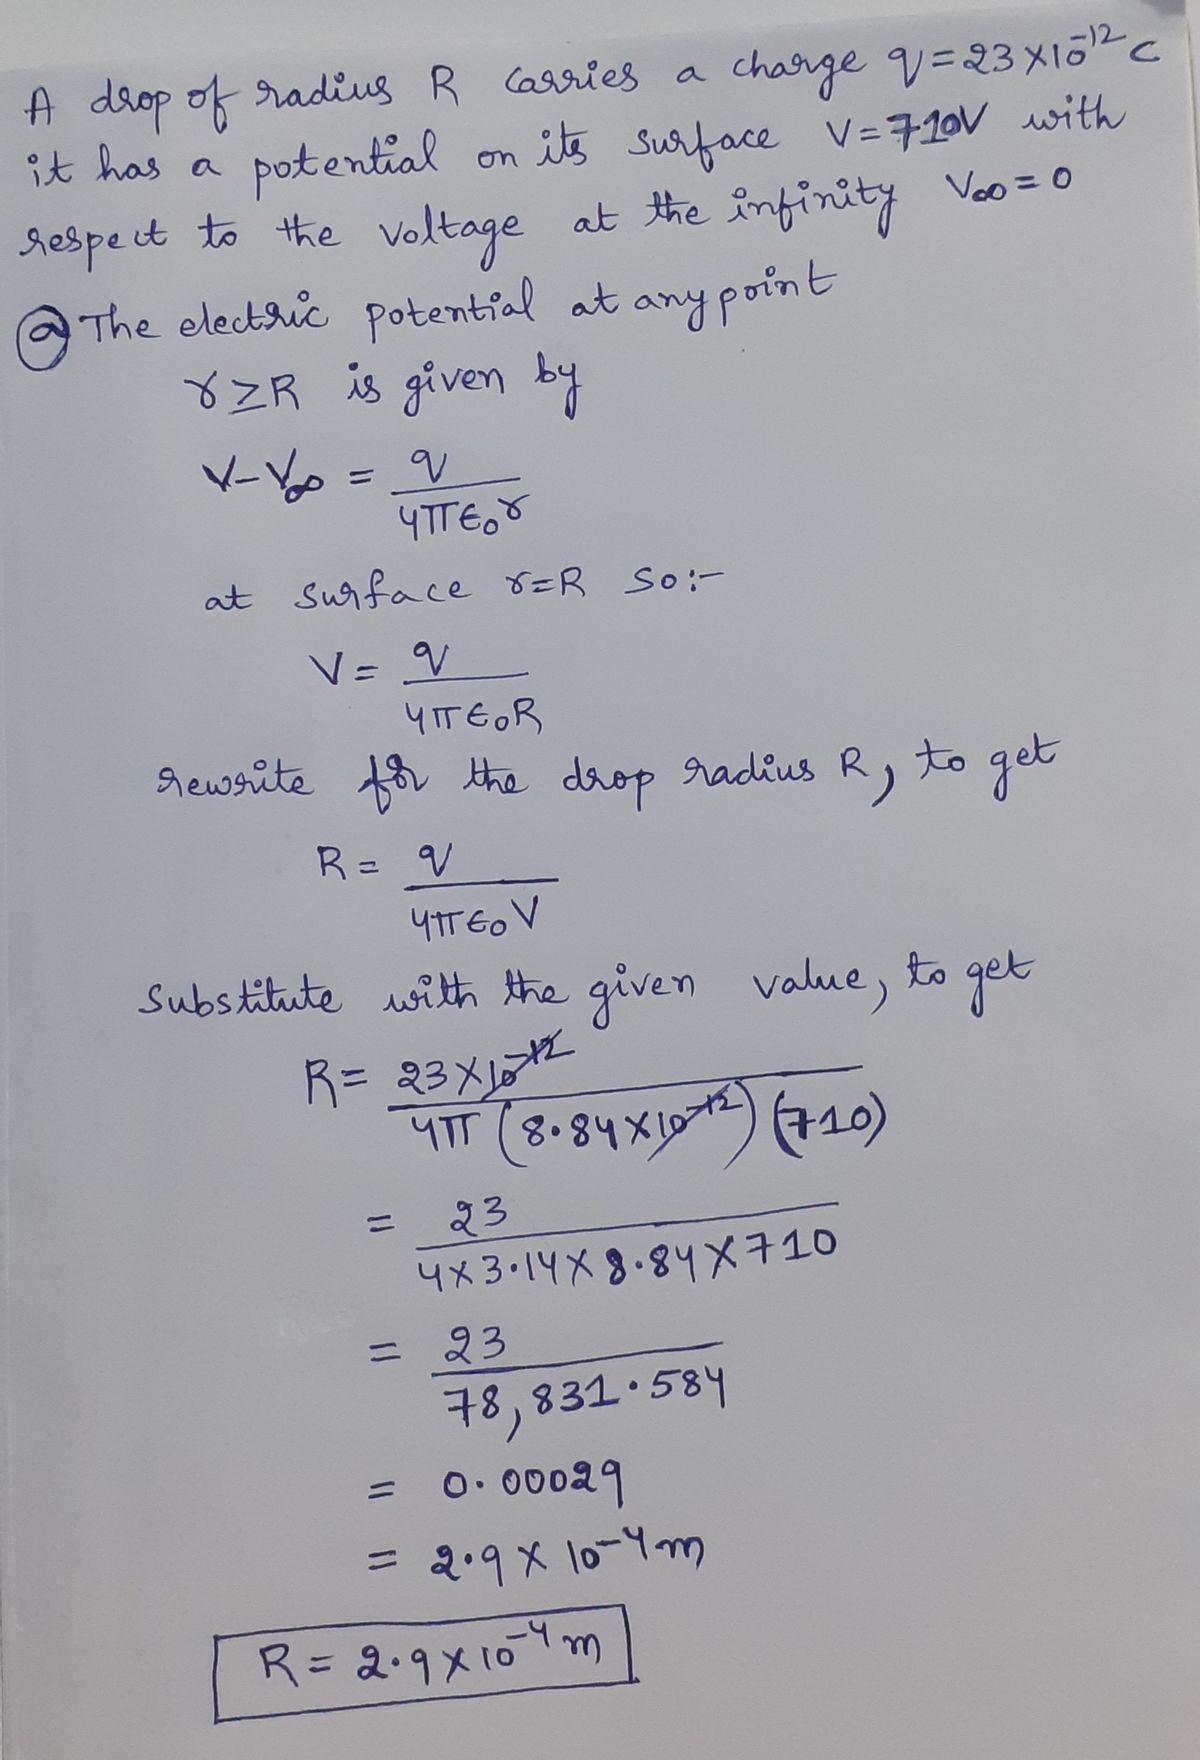 A drop of radius R carries a charge q=23×10⁻¹² C
it has a potential on its surface V=710V with
respect to the voltage at the infinity V∞=0
ⓐ The electric potential at any point
r≥R is given by
V-V∞ = q
4πϵ₀r
at surface r=R so:-
V= q
4πϵ₀R
rewrite for the drop radius R, to get
R= q
4πϵ₀V
Substitute with the given value, to get
R= 23×10⁻¹²
4π (8.84×10⁻¹²) (710)
= 23
4×3.14×8.84×710
= 23
78,831.584
= 0.00029
= 2.9×10⁻⁴m
R= 2.9×10⁻⁴m